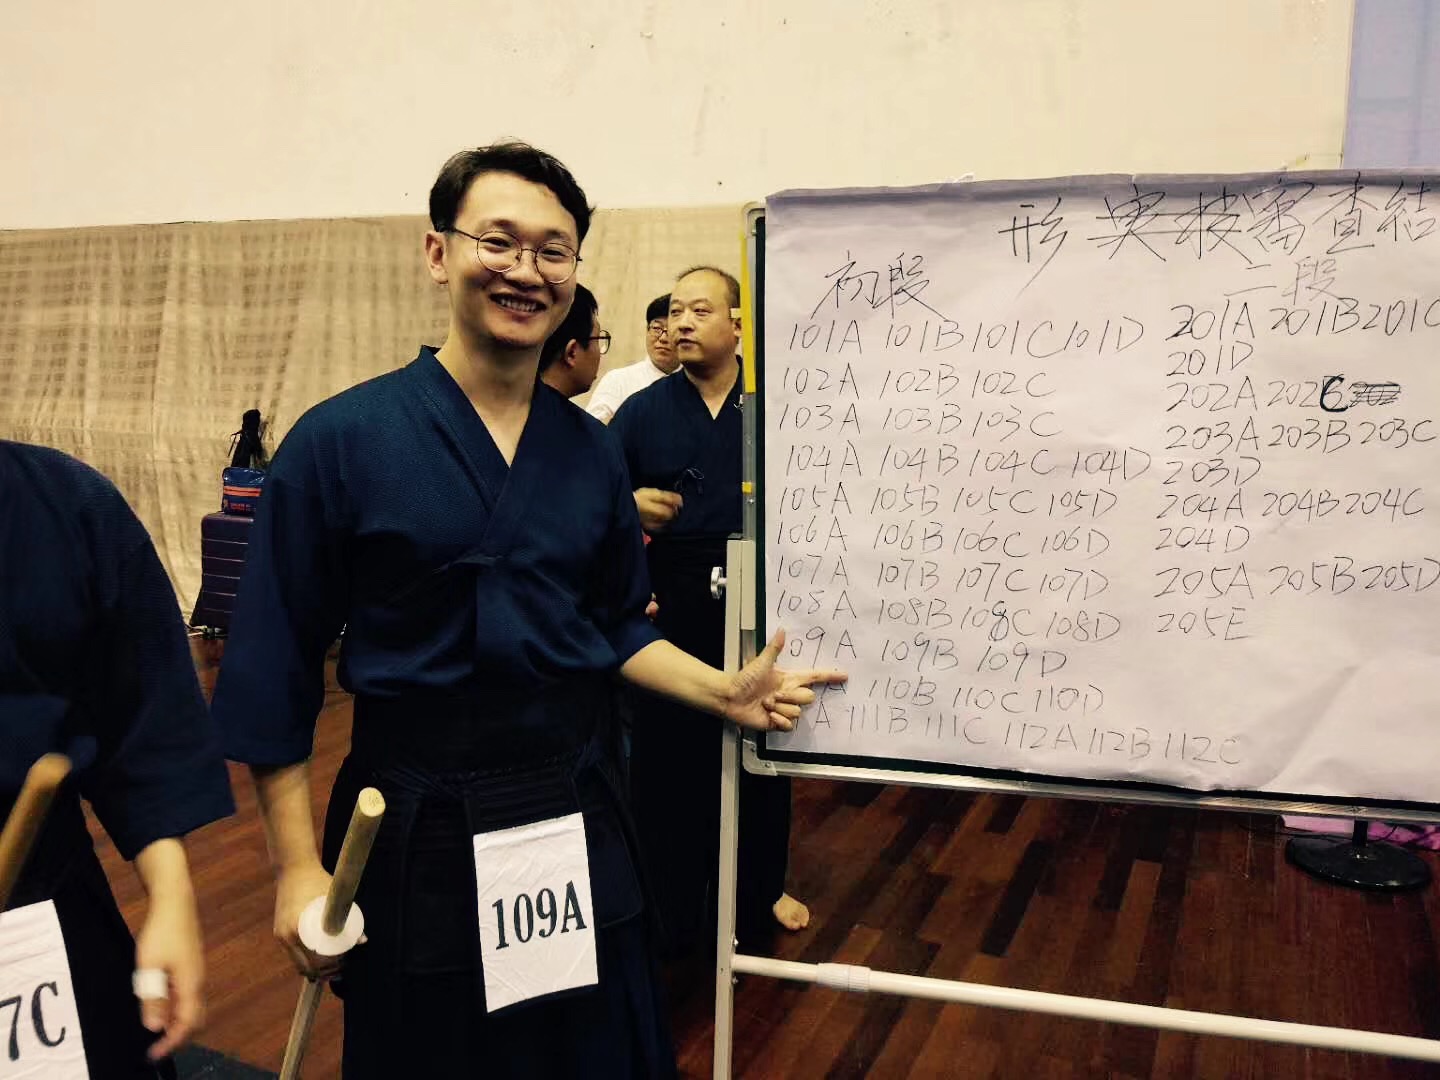 形 実技審査結
初段
101A 101B 101C 101D
102A 102B 102C
103A 103B 103C
104A 104B 104C 104D
105A 105B 105C 105D
106A 106B 106C 106D
107A 107B 107C 107D
108A 108B 108C 108D
109A 109B 109D
A 110B 110C 110D
A 111B 111C 112A 112B 112C
二段
201A 201B 201C
201D
202A 202C
203A 203B 203C
203D
204A 204B 204C
204D
205A 205B 205D
205E
109A
7C